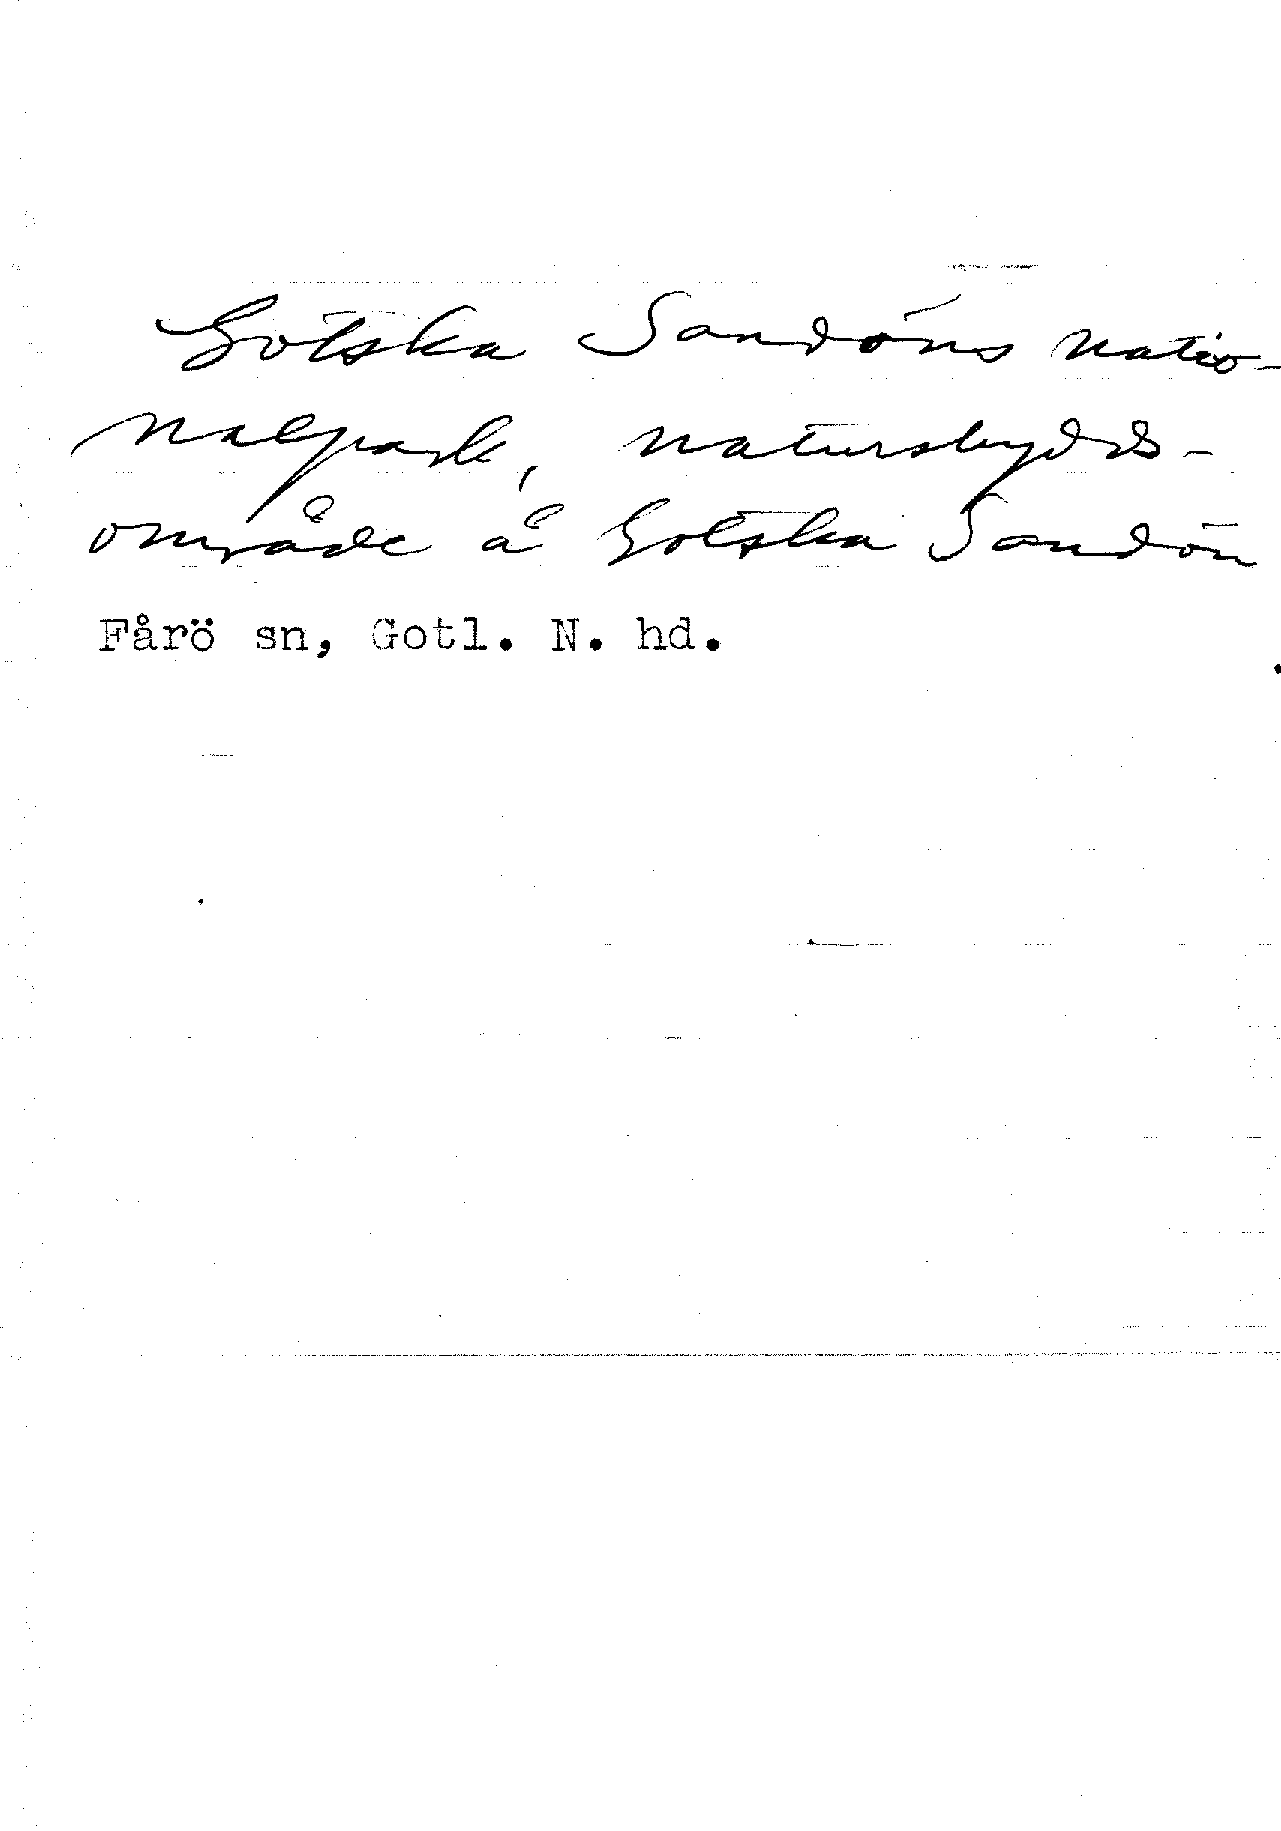 Gotska Sandöns natio-
nalpark, naturskydds-
område å Gotska Sandön
Fårö sn, Gotl. N. hd.